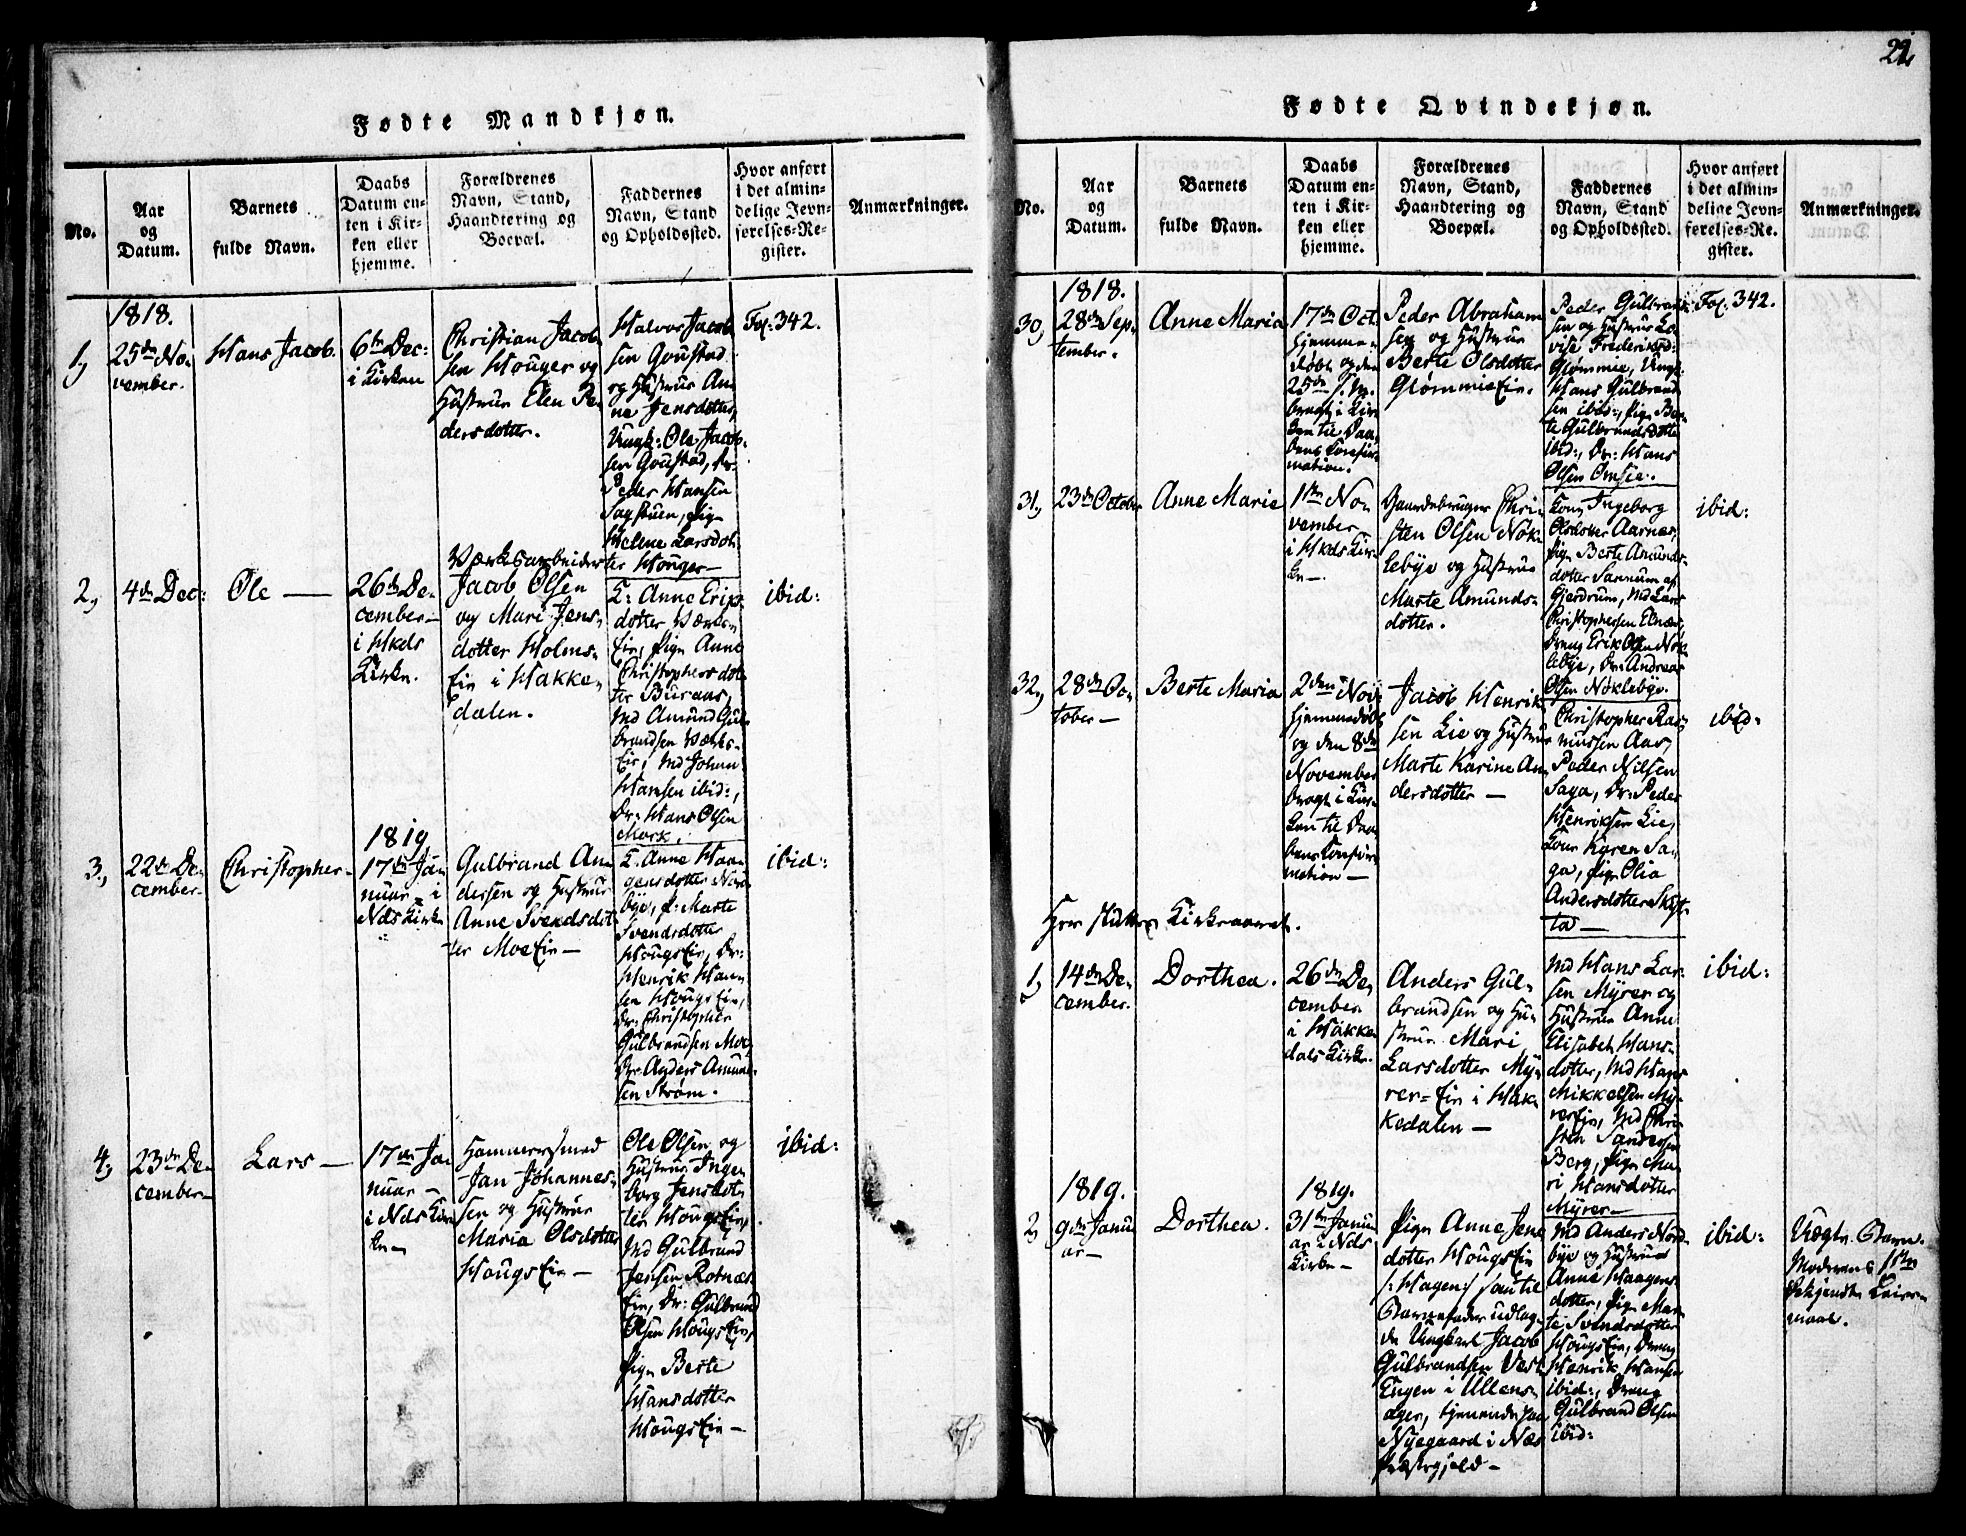 21
Fødte Mandkjøn.
No.
Aar
og
Datum.
Barnets
fulde Navn.
Daabs
Datum en-
ten i Kir-
ken eller
hjemme.
Forældrenes
Navn, Stand,
Haandtering og
Boepæl.
Faddernes
Navn, Stand
og Opholdssted.
Hvor anført
i det almin-
delige Jevn-
førelses-Re-
gister.
Anmærkninger.
1818.
1,
25de No-
vember.
Hans Jacob.
6te Dec:
i Kirken
Christian Jacob-
sen Houger og
Hustrue Elen Pe-
dersdotter.
Halvor Jacob-
sen Goustad
og Hustrue An-
ne Jensdotter,
Ungk: Ole Jacob-
sen Goustad, Dr:
Peder Hansen
Sagstuen, Pige
Helene Larsdot-
ter Houger—
Fol: 342.
2,
4de Dec:
Ole —
26de De-
cember
i Hkds
Kirke.
Værksarbeider
Jacob Olsen
og Mari Jens-
dotter Holms-
Eie i Hakke-
dalen.
K: Anne Erics-
dotter Værks-
Eie, Pige Anne
Christophersdot-
ter Buraas,
Md Amund Gul-
brandsen Værks-
Eie, Md Johan
Hansen ibid:,
Dr: Hans Olsen
Mork.
ibid:
3,
22de De-
cember
Christopher —
1819
17de Ja-
nuar i
Nds Kirke
Gulbrand An-
dersen og Hustrue
Anne Svendsdot-
ter Moe Eie—
K. Anne Haa-
gensdotter Nord-
bye, P: Marte
Svendsdotter
Hougs Eie, Dr:
Henrik Han-
sen Hougs Eie,
Dr: Christopher
Gulbrandsen Moe,
Dr: Anders Amund-
sen Strøm.
ibid:
4,
23de De-
cember—
Lars —
17de Ja-
nuar —
i Nds Kir-
ke—
Hammersmed
Jan Johannes-
sen og Hustrue
Maria Olsdotter
Hougs Eie—
Ole Olsen og
Hustrue Inge-
borg Jensdot-
ter Hougs Eie,
Md Gulbrand
Jensen Rotnæs
Eie, Dr: Gulbrand
Olsen Hougs Eie,
Pige Berte
Hansdotter
Hougs Eie—
ibid:
Fødte Qvindekjøn.
No.
Aar
og
Datum.
Barnets
fulde Navn.
Daabs
Datum en-
ten i Kir-
ken eller
hjemme.
Forældrenes
Navn, Stand,
Haandtering og
Boepæl.
Faddernes
Navn, Stand
og Opholdssted.
Hvor anført
i det almin-
delige Jevn-
førelses-Re-
gister.
Anmærkninger.
1818.
30,
28de Sep-
tember.
Anne Maria
17de Oct.
hjemme-
døbt og den
25de s. m.
bragt i Kir-
ken til Daa-
bens Confir-
mation.
Peder Abraham-
sen og Hustrue
Berte Olsdotter
Glømmie Eie.
Peder Gulbrand-
sen og Hustrue Lo-
vise Frederiksd:
Glømmie, Ungk.
Hans Gulbrand-
sen ibid:, Pige Ber-
te Gulbrandsdotter
ibid:, Dr: Hans
Olsen
Fol: 342.
31,
23de October
Anne Marie
1ste No-
vember
i Hkds Kir-
ke—.
Gaardebruger Chri-
sten Olsen Nøk-
lebye og Hustrue
Marte Amunds-
dotter.
Kone Ingeborg
Olsdotter Aarnæs,
Pige Berte Amunds-
dotter Sannum af
Gjerdrum, Md Lars
Christophersen Elnæs,
Dreng Erik Olsen Nøk-
lebye, Dr: Andreas
Olsen Nøklebye.
ibid:
32,
28de Oc-
tober—
Berte Maria
2den Nov:
hjemmedøbt
og den 8de
November
bragt i Kir-
ken til Daa-
bens Confir-
mation—
Jacob Henrik-
sen Lie og Hustrue
Marte Karine An-
dersdotter—
Christopher Ras-
mussen Aas,
Peder Nilsen
Saga, Dr: Peder
Henriksen Lie,
Kone Karen Sa-
ga, Pige Olia
Andersdotter Skyt-
ta—
ibid:
Her slutter Kirkeaaret.
1,
14de De-
cember.
Dorthea.
26de De-
cember
i Hakke-
dals Kirke.
Anders Gul-
brandsen og Hu-
strue Mari
Larsdotter My-
rer-Eie i Hak-
kedalen—
Md Hans Lar-
sen Myrer og
Hustrue Anne
Elisabet Hans-
dotter, Md Hans
Mikkelsen My-
rer Eie, Md Chri-
sten Sandersen
Berg, Pige Ma-
ri Hansdotter
Myrer—
ibid:
1819.
2,
9de Janu-
ar—
Dorthea.
1819.
31te Janu-
ar i Nds
Kirke—
Pige Anne Jens-
dotter Hougs Eie
/: Hagen:/ samt til
Barnefader udlag-
de Ungkarl Jacob
Gulbrandsen Vest-
Engen i Ullens-
ager, tjenende paa
Nyegaard i Næs
Præstegjeld—
Md Anders Nord-
bye og Hustrue
Anne Haagens-
dotter, Pige Mar-
te Svendsdotter
Hougs Eie, Dreng
Henrik Hansen
ibid:, Dreng
Gulbrand Olsen
ibid:
ibid:
Uægte Barn.
Moderens 1ste
bekjendte Leier-
maal.